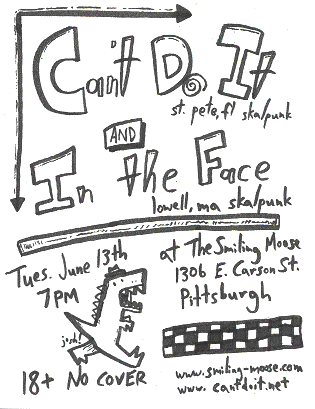 Can't Do It
st. pete, fl ska/punk
AND
In the Face
lowell, ma ska/punk
Tues. June 13th
7PM
at The Smiling Moose
1306 E. Carson St.
Pittsburgh
josh!
18+ No COVER
www.smiling-moose.com
www.cantdoit.net